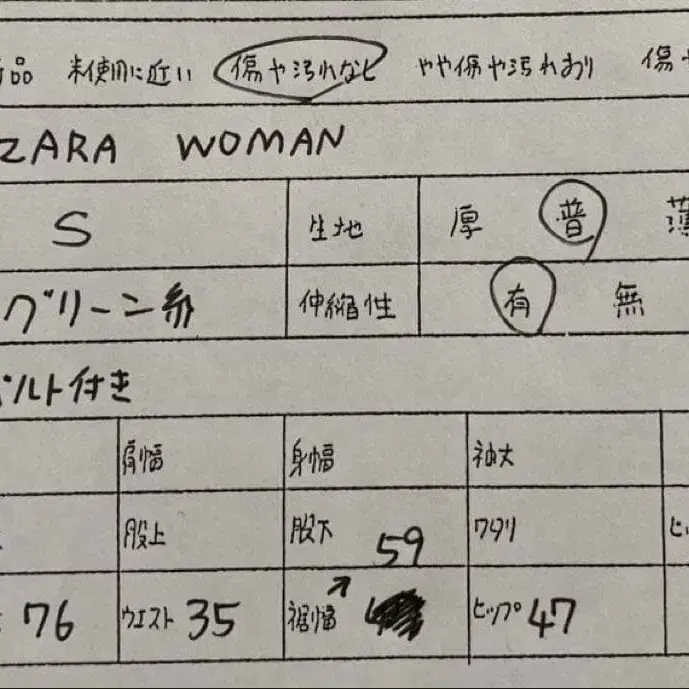 品 未使用に近い 傷や汚れなし やや傷や汚れあり 傷や
ZARA WOMAN
S 生地 厚 普 薄
グリーン系 伸縮性 有 無
ベルト付き
肩幅 身幅 袖丈
股上 股下 59 ワタリ
76 ウエスト 35 裾幅 ヒップ 47